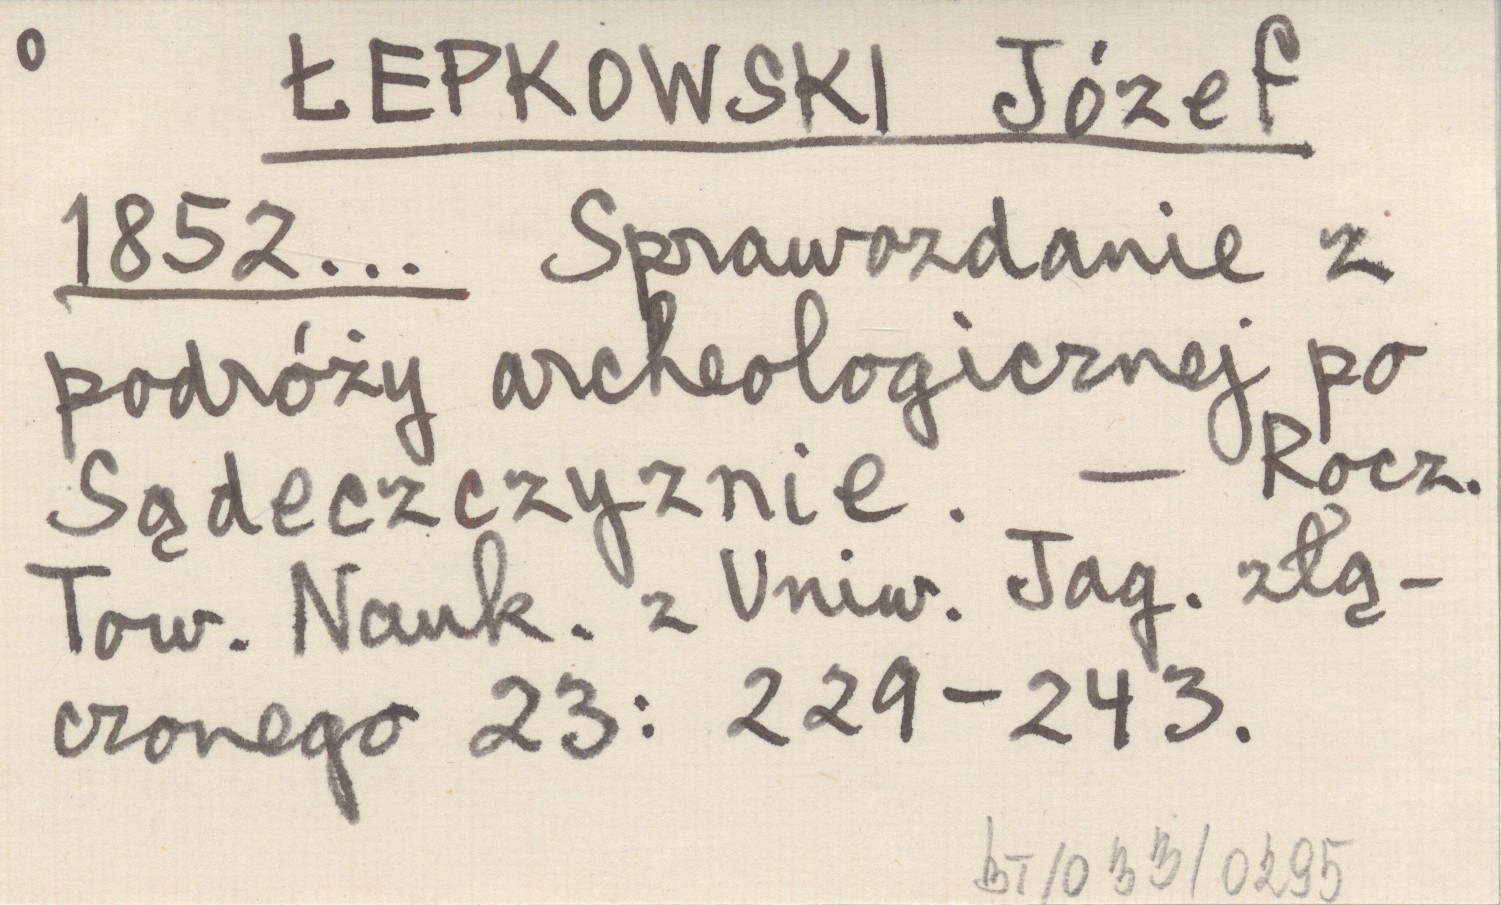 o ŁEPKOWSKI Józef
1852... Sprawozdanie z
podróży archeologicznej po
Sądeczczyznie. — Rocz.
Tow. Nauk. z Uniw. Jag. złą-
czonego 23: 229-243.
BT/033/0295